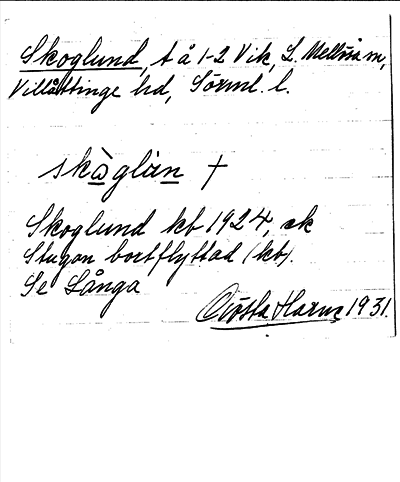 Skoglund, t å 1-2 Vik, L. Mellösa sn,
Villåttinge hd, Sörml. l.
skòglün †
Skoglund kb 1924, ek
Stugan bortflyttad (kb).
Se Långa
Gösta Harng 1931.